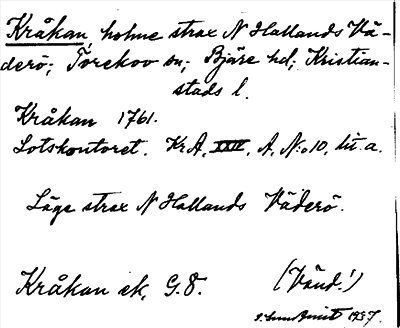 Kråkan, holme strax N Hallands Vä-
derö; Torekov sn; Bjäre hd; Kristian-
stads l.
Kråkan 1761.
Lotskontoret. KrA, XXIV, A, N:o 10, lit. a.
Läge strax N Hallands Väderö.
Kråkan ek, G.8. (Vänd!)
1937.